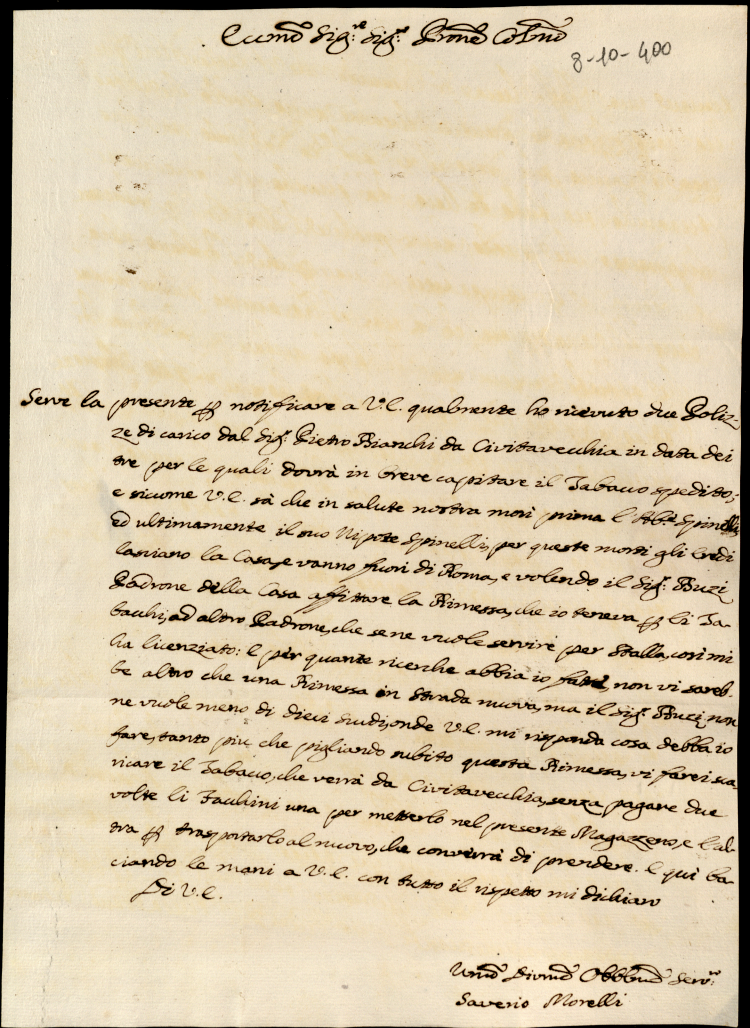 Eccmo Sig:re Sig:re Prone Colmo
8-10-400
Serve la presente p notificare a V.E. qualmente ho ricevuto due Poliz-
ze di carico dal Sig:r Pietro Bianchi da Civitavecchia in data dei
tre per le quali dovrà in breve capitare il Tabacco spedito;
e siccome V.E. sà che in salute nostra morì prima l'Abe Spinelli,
ed ultimamente il suo Nipote Spinelli, per queste morti gli Eredi
lasciano la Casa, e vanno fuori di Roma, e volendo il Sig:r Buzi
Padrone della Casa affittare la Rimessa, che io teneva p li Ta-
bacchi, ad altro Padrone, che se ne vuole servire per stalla, così mi
ha licenziato: E per quante ricerche abbia io fatte, non vi sareb-
be altro che una Rimessa in Strada nuova, ma il Sig:r Buzi non
ne vuole meno di dieci scudi, onde V.E. mi risponda cosa debba io
fare, tanto più che pigliando subito questa Rimessa, vi farei sca-
ricare il Tabacco, che verrà da Civitavecchia, senza pagare due
volte li Facchini una per metterlo nel presente Magazzeno, e l'al-
tra p trasportarlo al nuovo, che converrà di prendere. E quì ba-
ciando le mani a V.E. con tutto il rispetto mi dichiaro
Di V.E.
Umo Divmo Obbmo Serv:re
Saverio Morelli